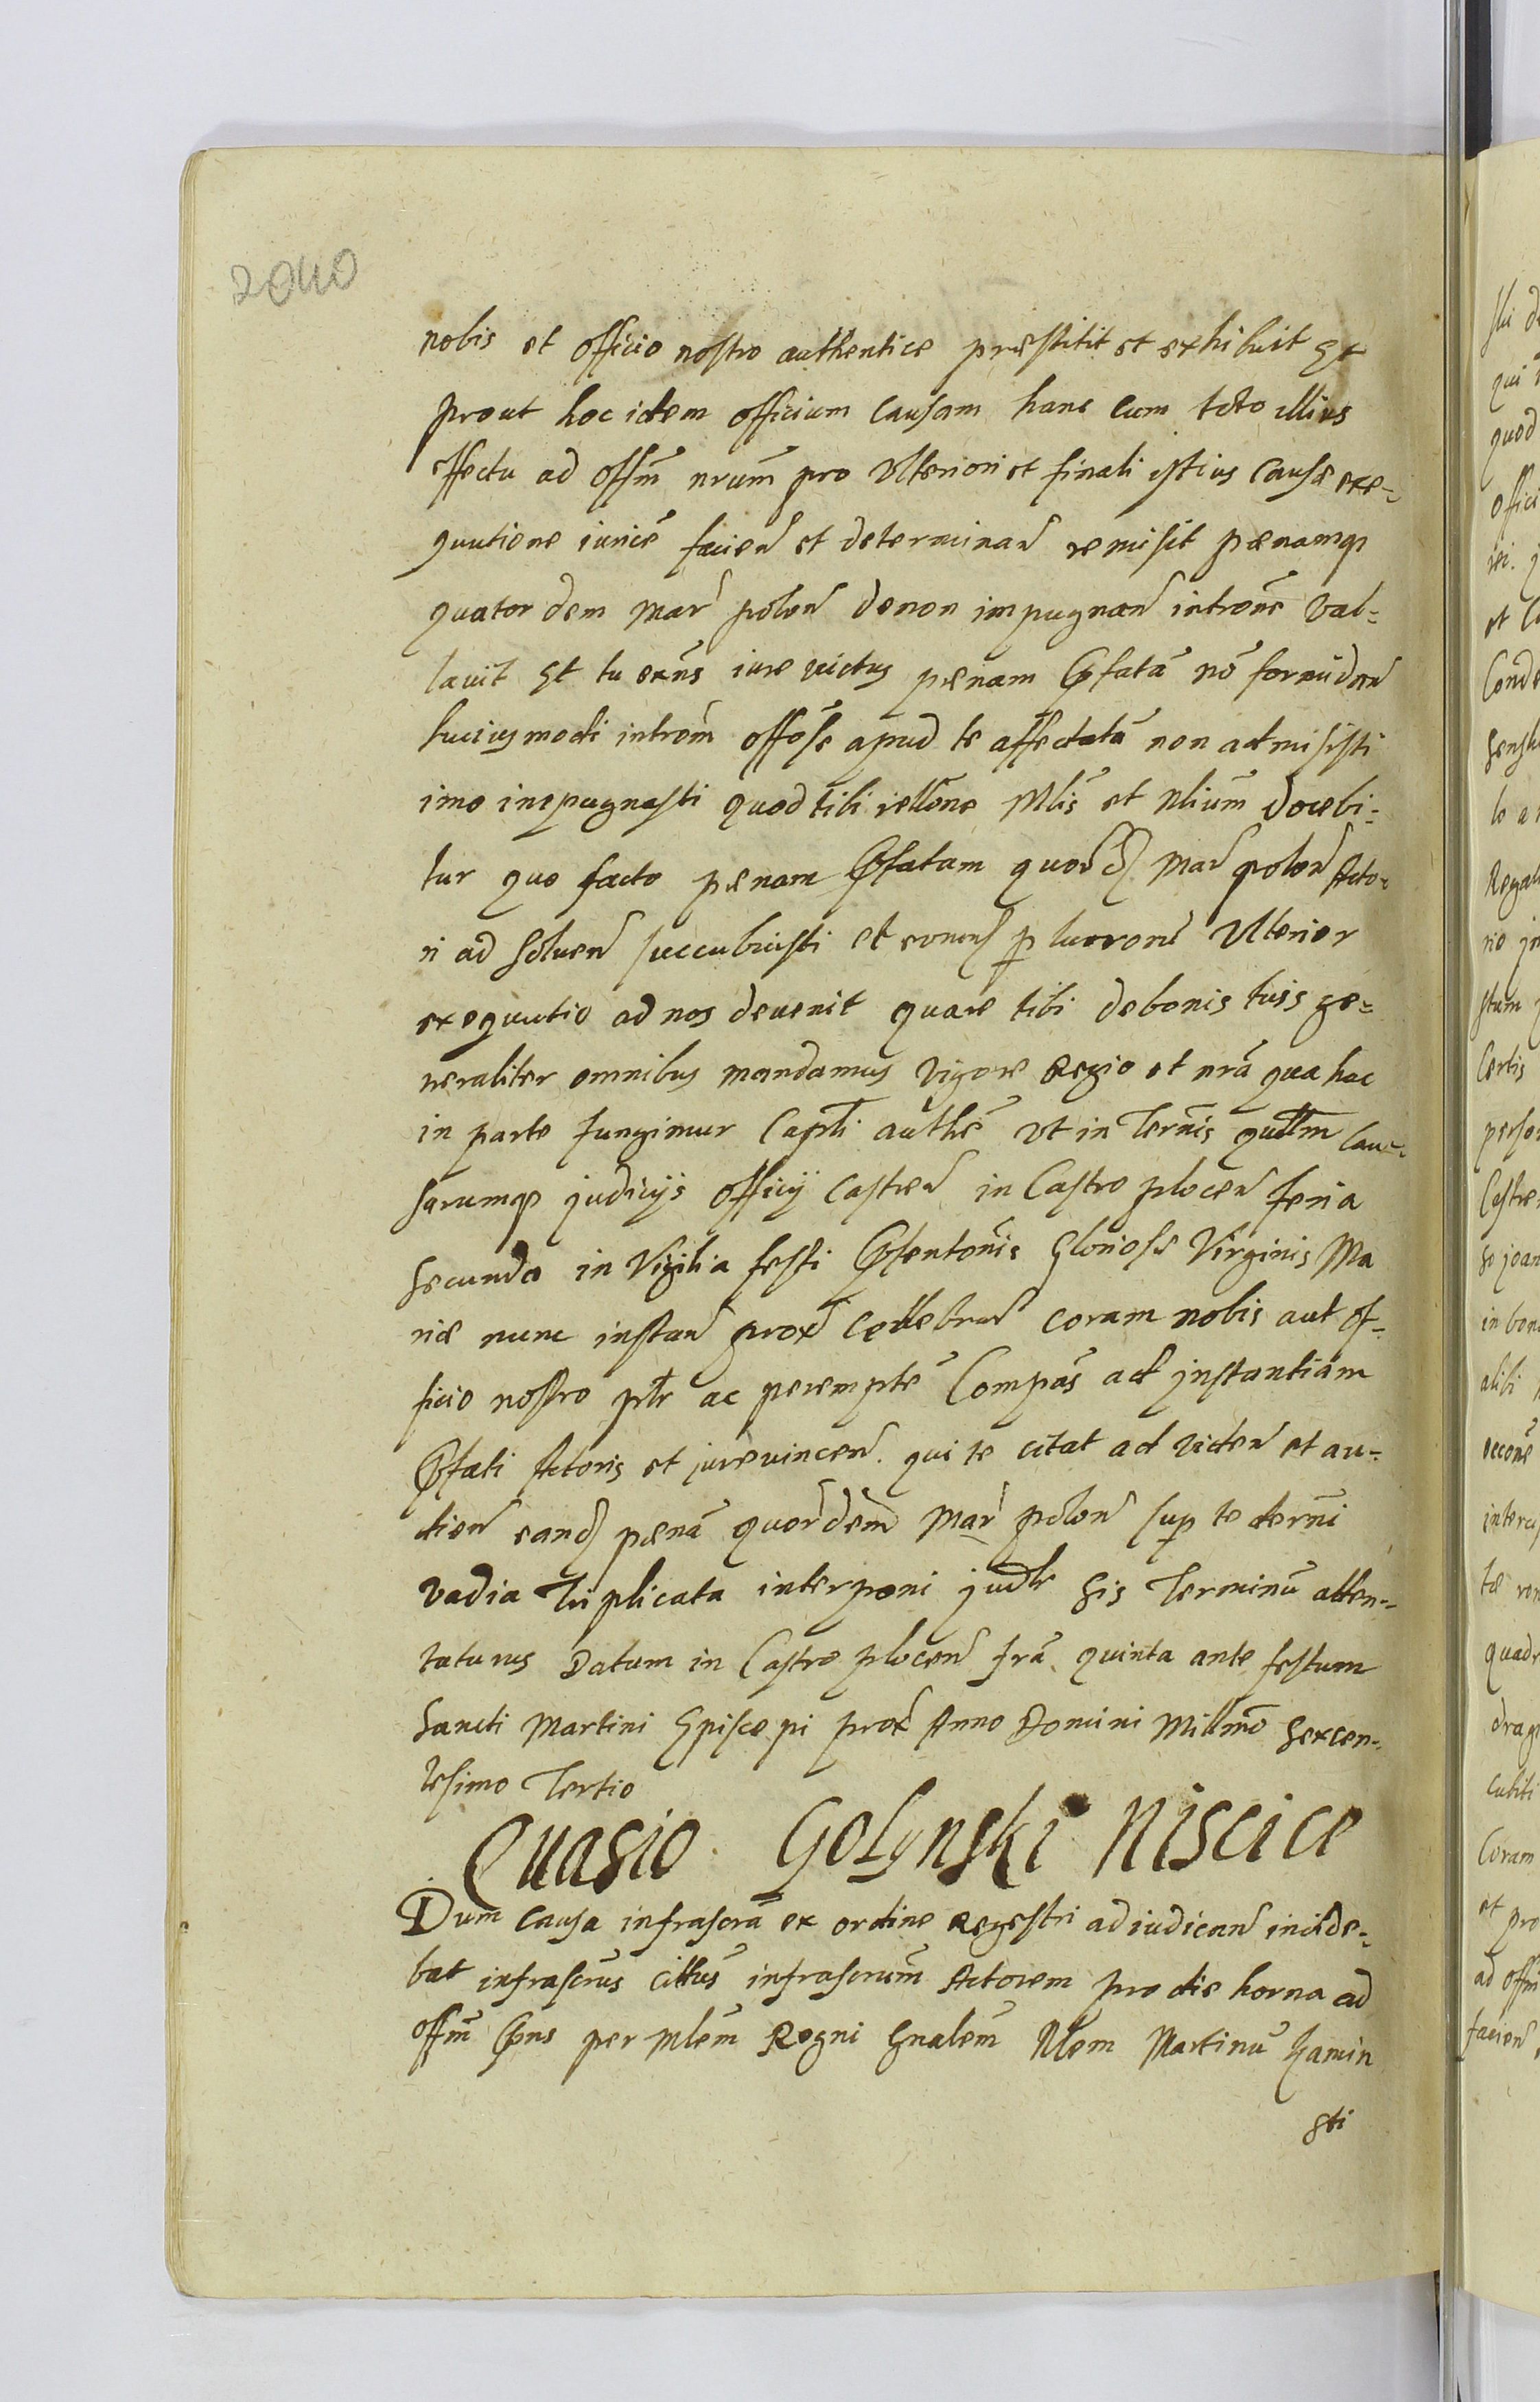 2040
nobis et officio nostro authentice præstitit et exhibuit Et
prout hoc idem officium causam hanc cum toto illius
effectu ad offm̃ nrum̃ pro Ulteriori et finali istius causæ exe-
qvutione iurice facien et determinan remisit pænamqz
quator dem Mar polon de non impugnan introñe val-
lavit Et tu exñs iure victus pænam Pfatã nõ formidan
huiusmodi introm̃ offose apud te affectatã non admisisti
imo inpugnasti quod tibi rellone Mlis et Nlium docebi-
tur quo facto pænam Pfatam quord Mar polon Acto-
ri ad soluen succubuisti et
exeqvutio ad nos devenit quare tibi de bonis tuis ge-
neraliter omnibus mandamus vigore Regio et nrã qua hac
in parte fungimur Capli authe Ut in Terñis qudlm cau-
sarumqz judicijs officij castren in Castro plocen feria
secunda in Vigilia festi Psentonis Gloriose Virginis Ma
riæ nunc instan prox cellebran coram nobis aut of-
ficio nostro plr ac perempte Compas ad jnstantiam
Pfati Actoris et jurevincen. qui te citat ad viden et au-
dien eand pænã quordem Mar polon sup te decerni
vadia Triplicata interponi judlr sis Terminũ atten-
taturus Datum in Castro plocen frã quinta ante festum
sancti Martini Episcopi prox Anno Domini Millmo sexcen-
tesimo Tertio
Quasio Golynski Niscice
Dum causa infrascrã ex ordine Regestri ad iudican incide-
bat infrascrus Cittus infrascrum Actorem pro die horna ad
offm̃ Pns per Mlem Regni Gnalem Nlem Martinũ Kamin
ski